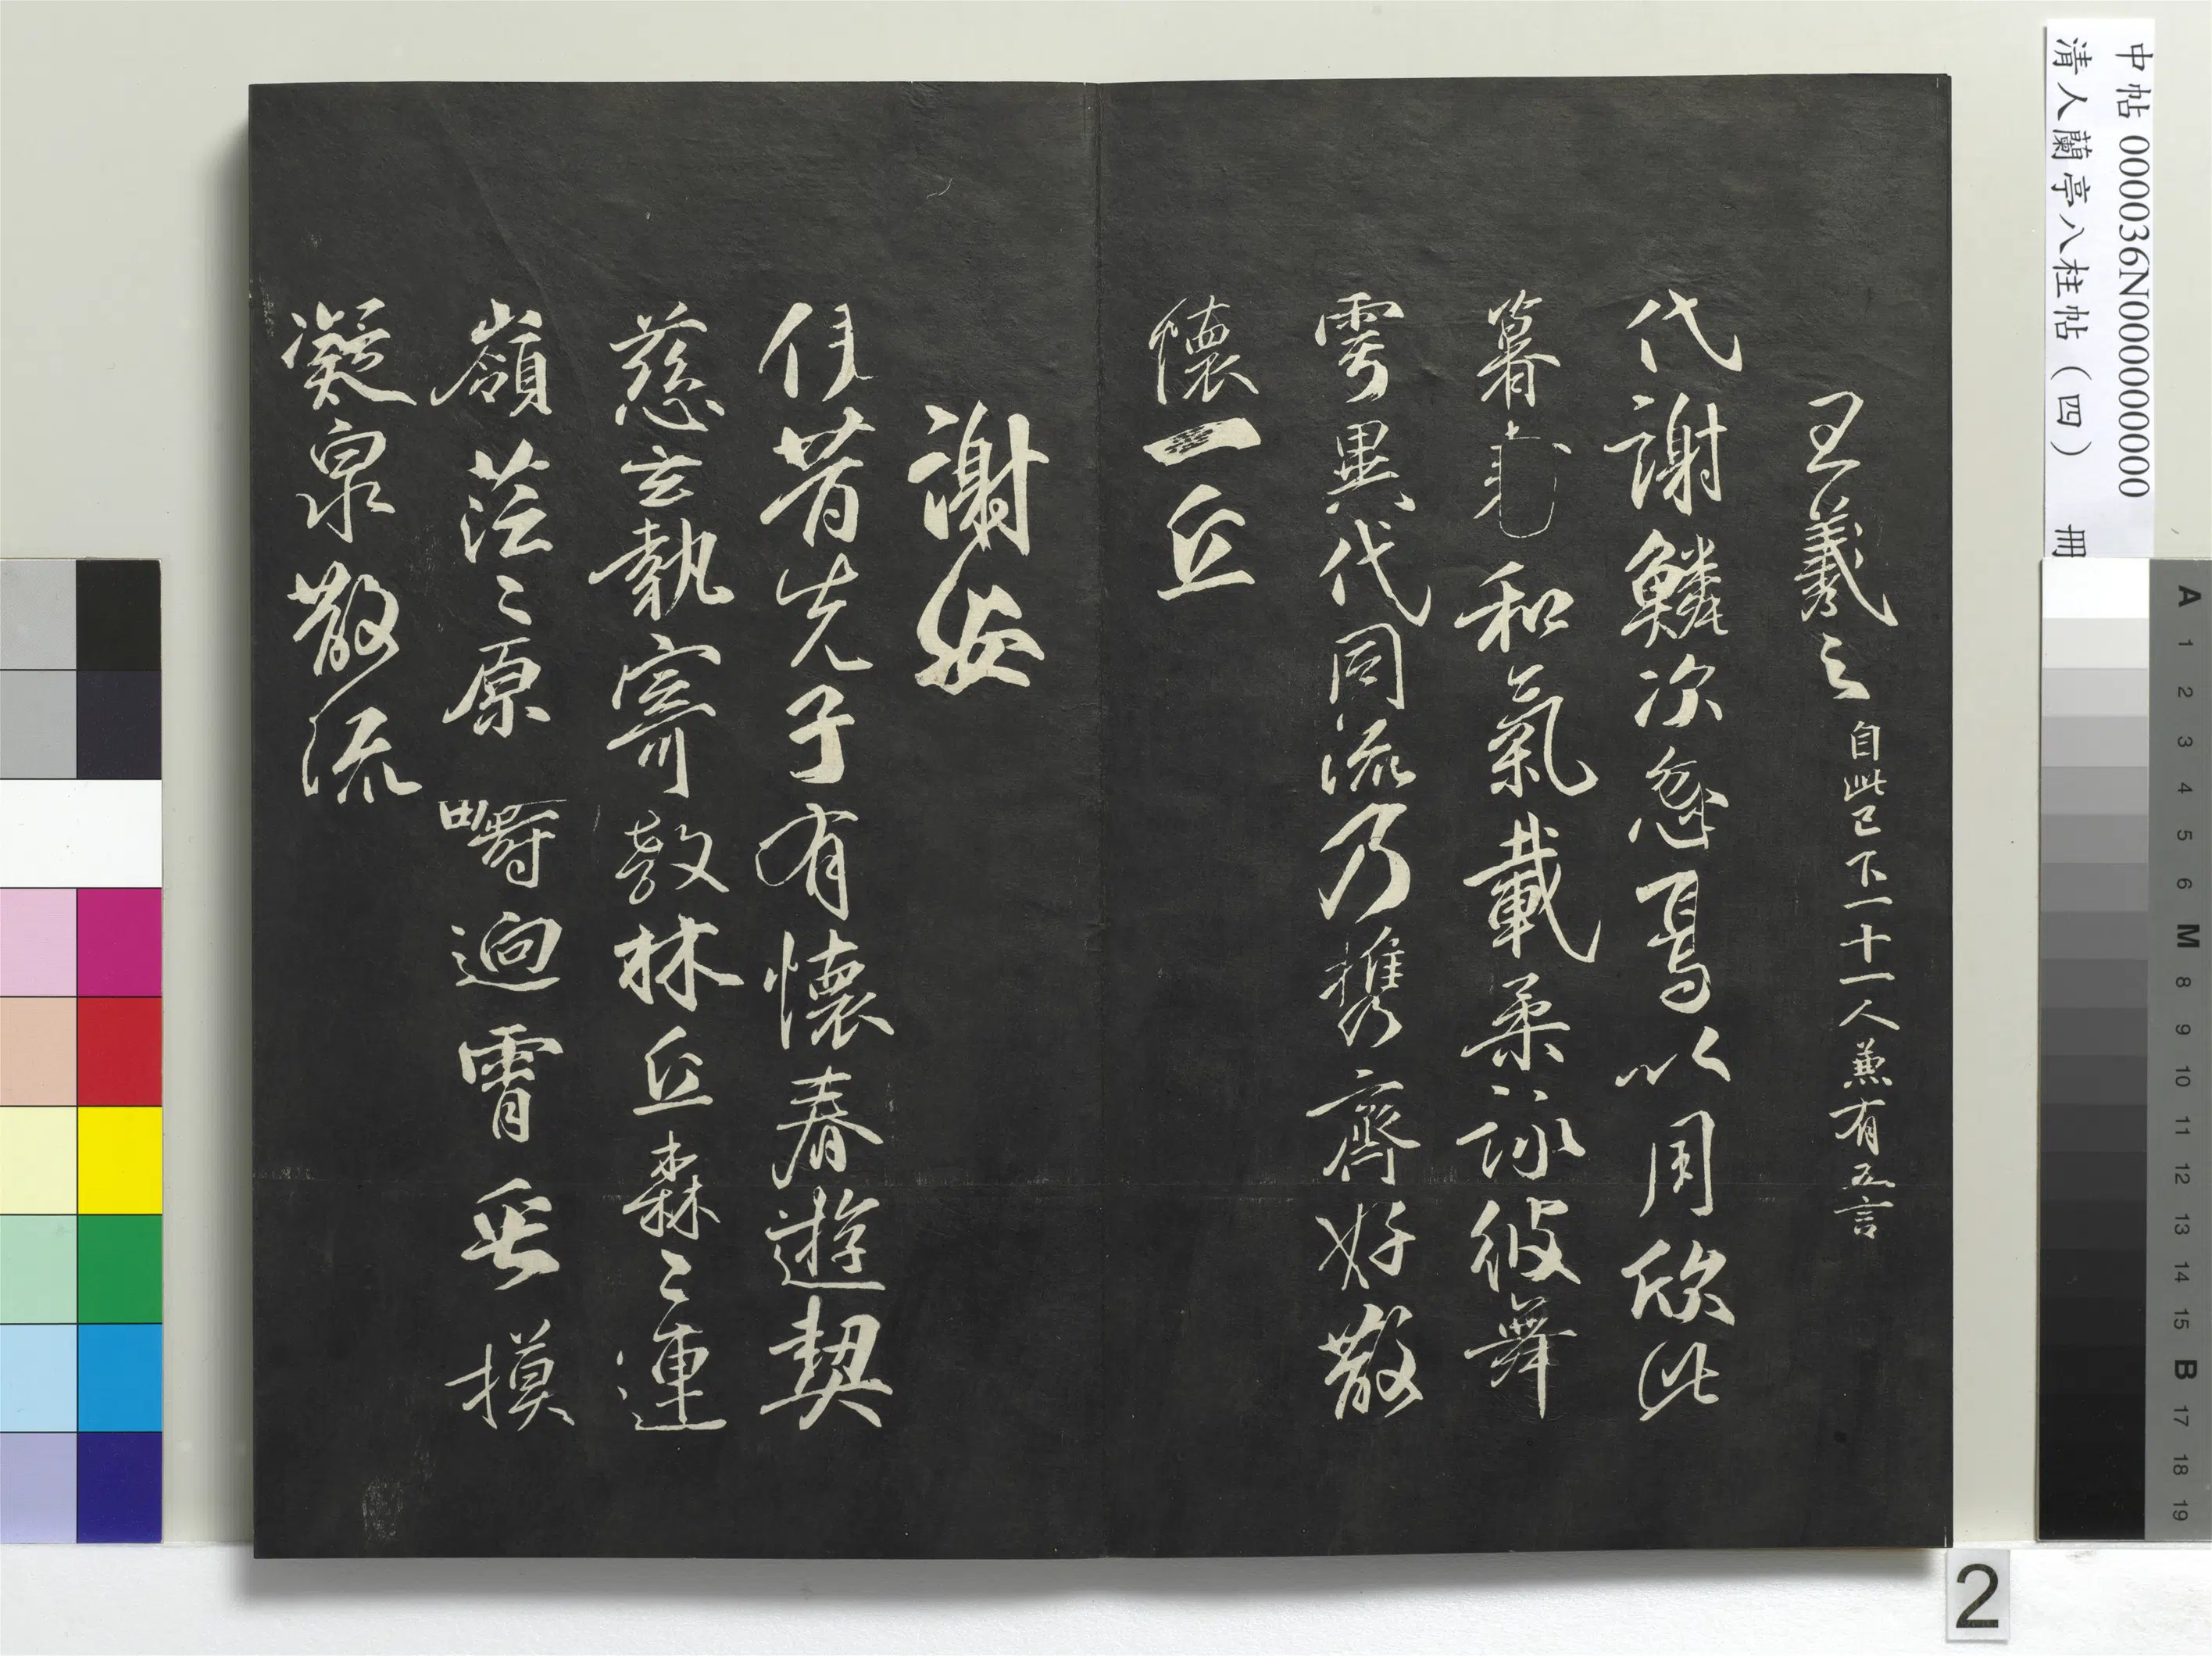 中帖 000036N000000000
清人蘭亭八柱帖(四) 冊
王羲之 自此已下一十一人兼有五言
代謝鱗次忽焉以周欣此
暮春和氣載柔詠彼舞
雩異代同流乃携齊好散
懷一丘
謝安
伊昔先子有懷春遊契
慈玄執寄敖林丘森〻連
嶺茫〻原疇迥霄垂摸
凝泉散流
A 1 2 3 4 5 6 M 8 9 10 11 12 13 14 15 B 17 18 19
2